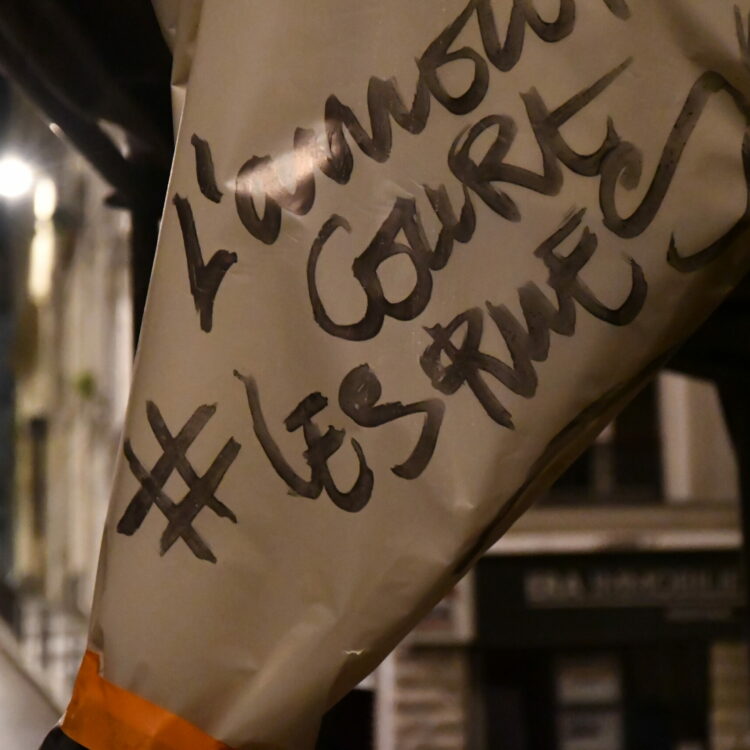 L'amour
COURT
#LES RUES